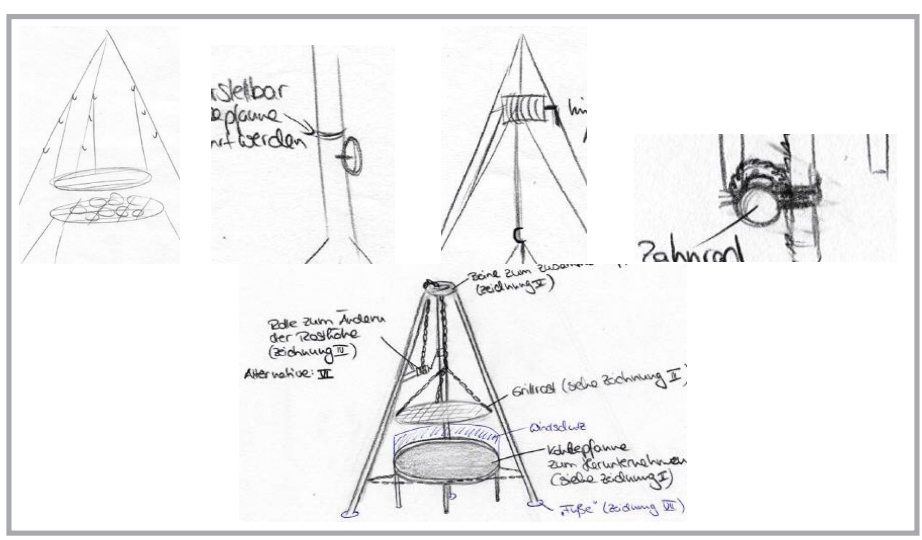 rstellbar
epfanne
rt werden
Zahnrad
Beine zum
(Zeichnung V)
Rolle zum Ändern
der Rosthöhe
(Zeichnung IV)
Alternative: VI
Grillrost (siehe Zeichnung II)
Windschutz
Kohlepfanne
zum Herunternehmen
(siehe Zeichnung I)
"Füße" (Zeichnung VII)